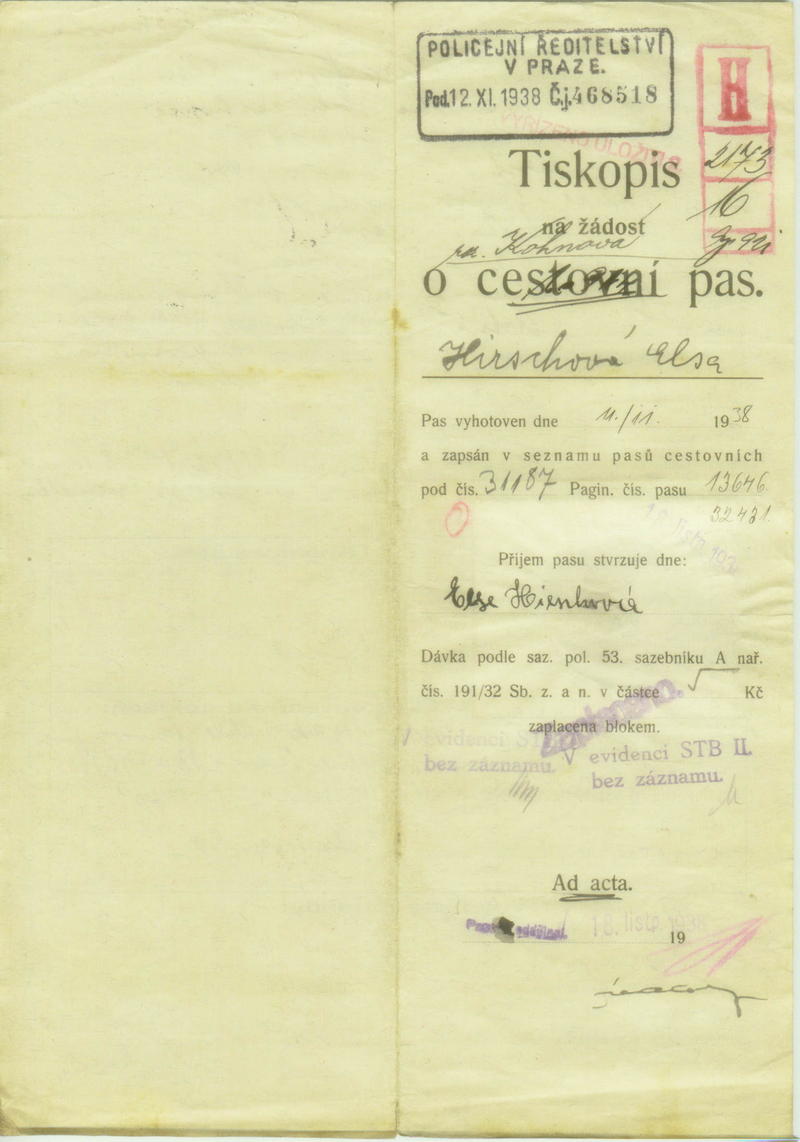 POLICEJNÍ ŘEDITELSTVÍ
V PRAZE.
Pod.12. XI. 1938 Č.j.468518
H
2173
16
Tiskopis
na žádost
Kohnova
o cestovní pas.
Hirschová Elsa
Pas vyhotoven dne 11./11. 1938
a zapsán v seznamu pasů cestovních
pod čís. 31187 Pagin. čís. pasu 13646.
32431.
Příjem pasu stvrzuje dne:
Dávka podle saz. pol. 53. sazebníku A nař.
čís. 191/32 Sb. z. a n. v částce Kč
Zaplaceno.
zaplacena blokem.
evidenci
bez záznamu.
V evidenci STB II.
bez záznamu.
Ad acta.
18. listp. 1938
19